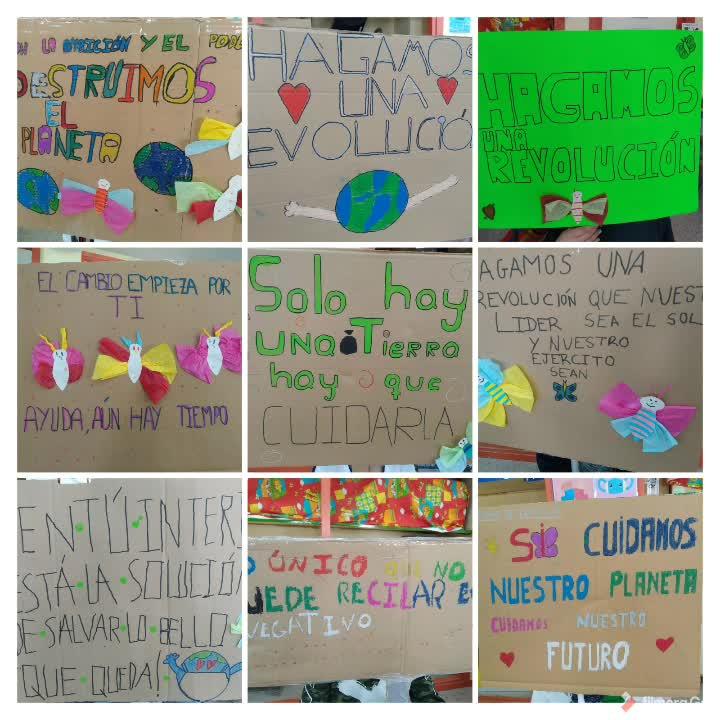 LA AMBICIÓN Y EL PODE
DESTRUIMOS
EL
PLANETA
HAGAMOS
UNA
EVOLUCIÓ
HAGAMOS
UNA
REVOLUCIÓN
EL CAMBIO EMPIEZA POR
TI
AYUDA, AÚN HAY TIEMPO
Solo hay
UNA Tierra
hay que
CUIDARLA
AGAMOS UNA
REVOLUCIÓN QUE NUEST
LIDER SEA EL SOL
Y NUESTRO
EJERCITO
SEAN
EN TÚ INTER
STÁ LA SOLUCIÓ
DE SALVAR LO BELLO
QUE QUEDA!
O ÚNICO QUE NO
UEDE RECILAR E
NEGATIVO
Si CUIDAMOS
NUESTRO PLANETA
CUIDAMOS NUESTRO
FUTURO
filmora G